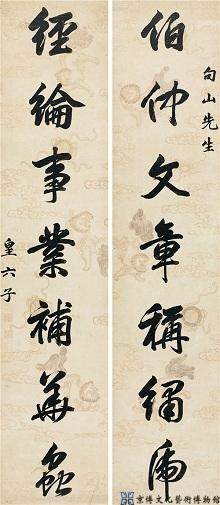 句山先生
伯仲文章稱繡虎
經綸事業補華蟲
皇六子
京博文化藝術博物館